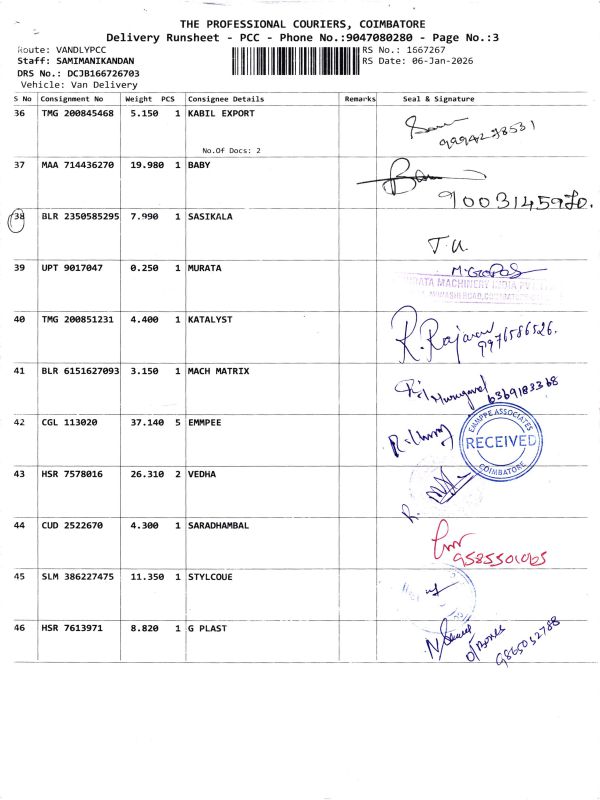 THE PROFESSIONAL COURIERS, COIMBATORE
Delivery Runsheet - PCC - Phone No.:9047080280 - Page No.:3
Route: VANDLYPCC RS No.: 1667267
Staff: SAMIMANIKANDAN RS Date: 06-Jan-2026
DRS No.: DCJB166726703
Vehicle: Van Delivery
S No Consignment No Weight PCS Consignee Details Remarks Seal & Signature
36 TMG 200845468 5.150 1 KABIL EXPORT
9994278531
No.Of Docs: 2
37 MAA 714436270 19.980 1 BABY
9003145970.
38 BLR 2350585295 7.990 1 SASIKALA
T.U.
39 UPT 9017047 0.250 1 MURATA
MURATA MACHINERY INDIA PVT
40 TMG 200851231 4.400 1 KATALYST
R. Rajavan
9976586526.
41 BLR 6151627093 3.150 1 MACH MATRIX
Murugavel 6369183368
42 CGL 113020 37.140 5 EMMPEE
EMMPPE ASSOCIATES
RECEIVED
COIMBATORE
43 HSR 7578016 26.310 2 VEDHA
R.
44 CUD 2522670 4.300 1 SARADHAMBAL
9585501065
45 SLM 386227475 11.350 1 STYLCOUE
46 HSR 7613971 8.820 1 G PLAST
9865032788